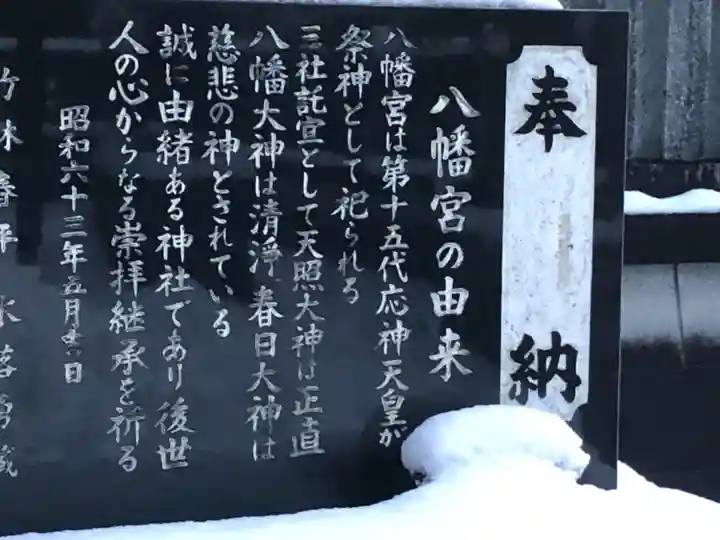 奉納
八幡宮の由来
八幡宮は第十五代応神天皇が
祭神として祀られる
三社託宣として天照大神は正直
八幡大神は清浄、春日大神は
慈悲の神とされている
誠に由緒ある神社であり後世
人の心からなる崇拝継承を祈る
昭和六十三年五月吉日
竹林春平
水落
蔵